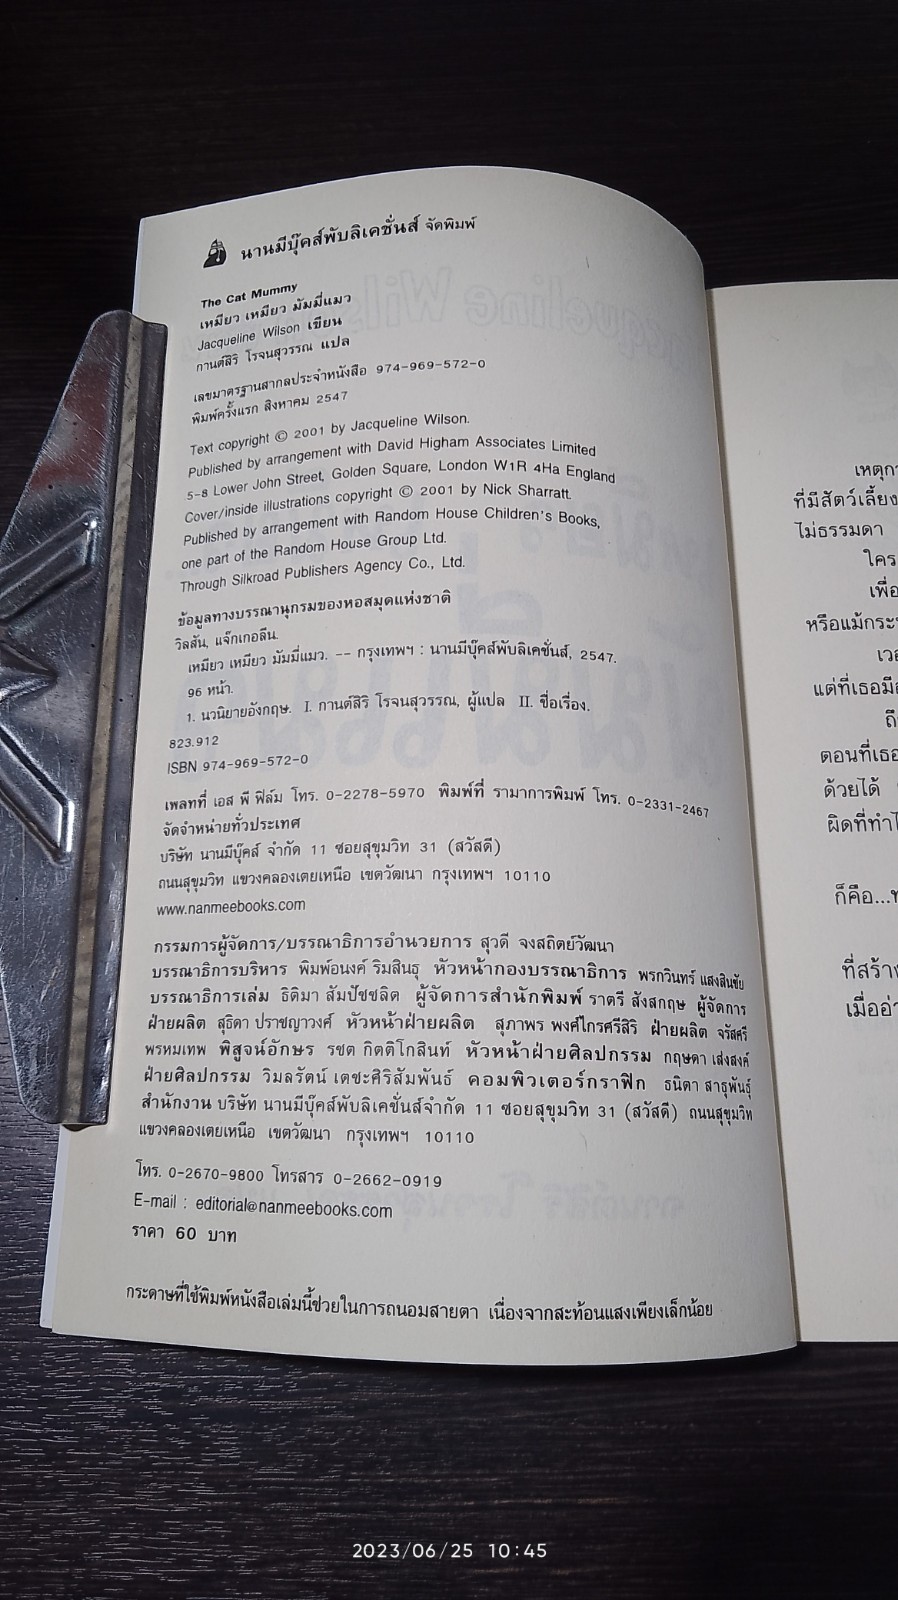 นานมีบุ๊คส์พับลิเคชั่นส์ จัดพิมพ์
The Cat Mummy
เหมียว เหมียว มัมมี่แมว
Jacqueline Wilson เขียน
กานต์สิริ โรจนสุวรรณ แปล
เลขมาตรฐานสากลประจำหนังสือ 974-969-572-0
พิมพ์ครั้งแรก สิงหาคม 2547
Text copyright © 2001 by Jacqueline Wilson.
Published by arrangement with David Higham Associates Limited
5-8 Lower John Street, Golden Square, London W1R 4Ha England
Cover/inside illustrations copyright © 2001 by Nick Sharratt.
Published by arrangement with Random House Children's Books,
one part of the Random House Group Ltd.
Through Silkroad Publishers Agency Co., Ltd.
ข้อมูลทางบรรณานุกรมของหอสมุดแห่งชาติ
วิลสัน, แจ๊กเกอลีน.
เหมียว เหมียว มัมมี่แมว. -- กรุงเทพฯ : นานมีบุ๊คส์พับลิเคชั่นส์, 2547.
96 หน้า.
1. นวนิยายอังกฤษ. I. กานต์สิริ โรจนสุวรรณ, ผู้แปล II. ชื่อเรื่อง.
823.912
ISBN 974-969-572-0
เพลทที่ เอส พี ฟิล์ม โทร. 0-2278-5970 พิมพ์ที่ รามาการพิมพ์ โทร. 0-2331-2467
จัดจำหน่ายทั่วประเทศ
บริษัท นานมีบุ๊คส์ จำกัด 11 ซอยสุขุมวิท 31 (สวัสดี)
ถนนสุขุมวิท แขวงคลองเตยเหนือ เขตวัฒนา กรุงเทพฯ 10110
www.nanmeebooks.com
กรรมการผู้จัดการ/บรรณาธิการอำนวยการ สุวดี จงสถิตย์วัฒนา
บรรณาธิการบริหาร พิมพ์อนงค์ ริมสินธุ หัวหน้ากองบรรณาธิการ พรกวินทร์ แสงสินชัย
บรรณาธิการเล่ม ธิติมา สัมปัชชลิต ผู้จัดการสำนักพิมพ์ ราตรี สังสกฤษ ผู้จัดการ
ฝ่ายผลิต สุธิดา ปราชญาวงศ์ หัวหน้าฝ่ายผลิต สุภาพร พงศ์ไกรศรีสิริ ฝ่ายผลิต จรัสศรี
พรหมเทพ พิสูจน์อักษร รชต กิตติโกสินท์ หัวหน้าฝ่ายศิลปกรรม กฤษดา เส่งสงค์
ฝ่ายศิลปกรรม วิมลรัตน์ เตชะศิริสัมพันธ์ คอมพิวเตอร์กราฟิก ธนิตา สาธุพันธุ์
สำนักงาน บริษัท นานมีบุ๊คส์พับลิเคชั่นส์จำกัด 11 ซอยสุขุมวิท 31 (สวัสดี) ถนนสุขุมวิท
แขวงคลองเตยเหนือ เขตวัฒนา กรุงเทพฯ 10110
โทร. 0-2670-9800 โทรสาร 0-2662-0919
E-mail : editorial@nanmeebooks.com
ราคา 60 บาท
กระดาษที่ใช้พิมพ์หนังสือเล่มนี้ช่วยในการถนอมสายตา เนื่องจากสะท้อนแสงเพียงเล็กน้อย
ที่มีสัตว์เลี้ยง
ไม่ธรรมดา
ใคร
เพื่อ
แต่ที่เธอมี
ตอนที่เธอ
ด้วยได้
ผิดที่ทำ
ก็คือ...
ที่สร้าง
2023/06/25 10:45